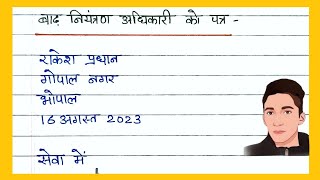 बाढ़ नियंत्रण अधिकारी को पत्र -
राकेश प्रधान
गोपाल नगर
भोपाल
16 अगस्त 2023
सेवा में